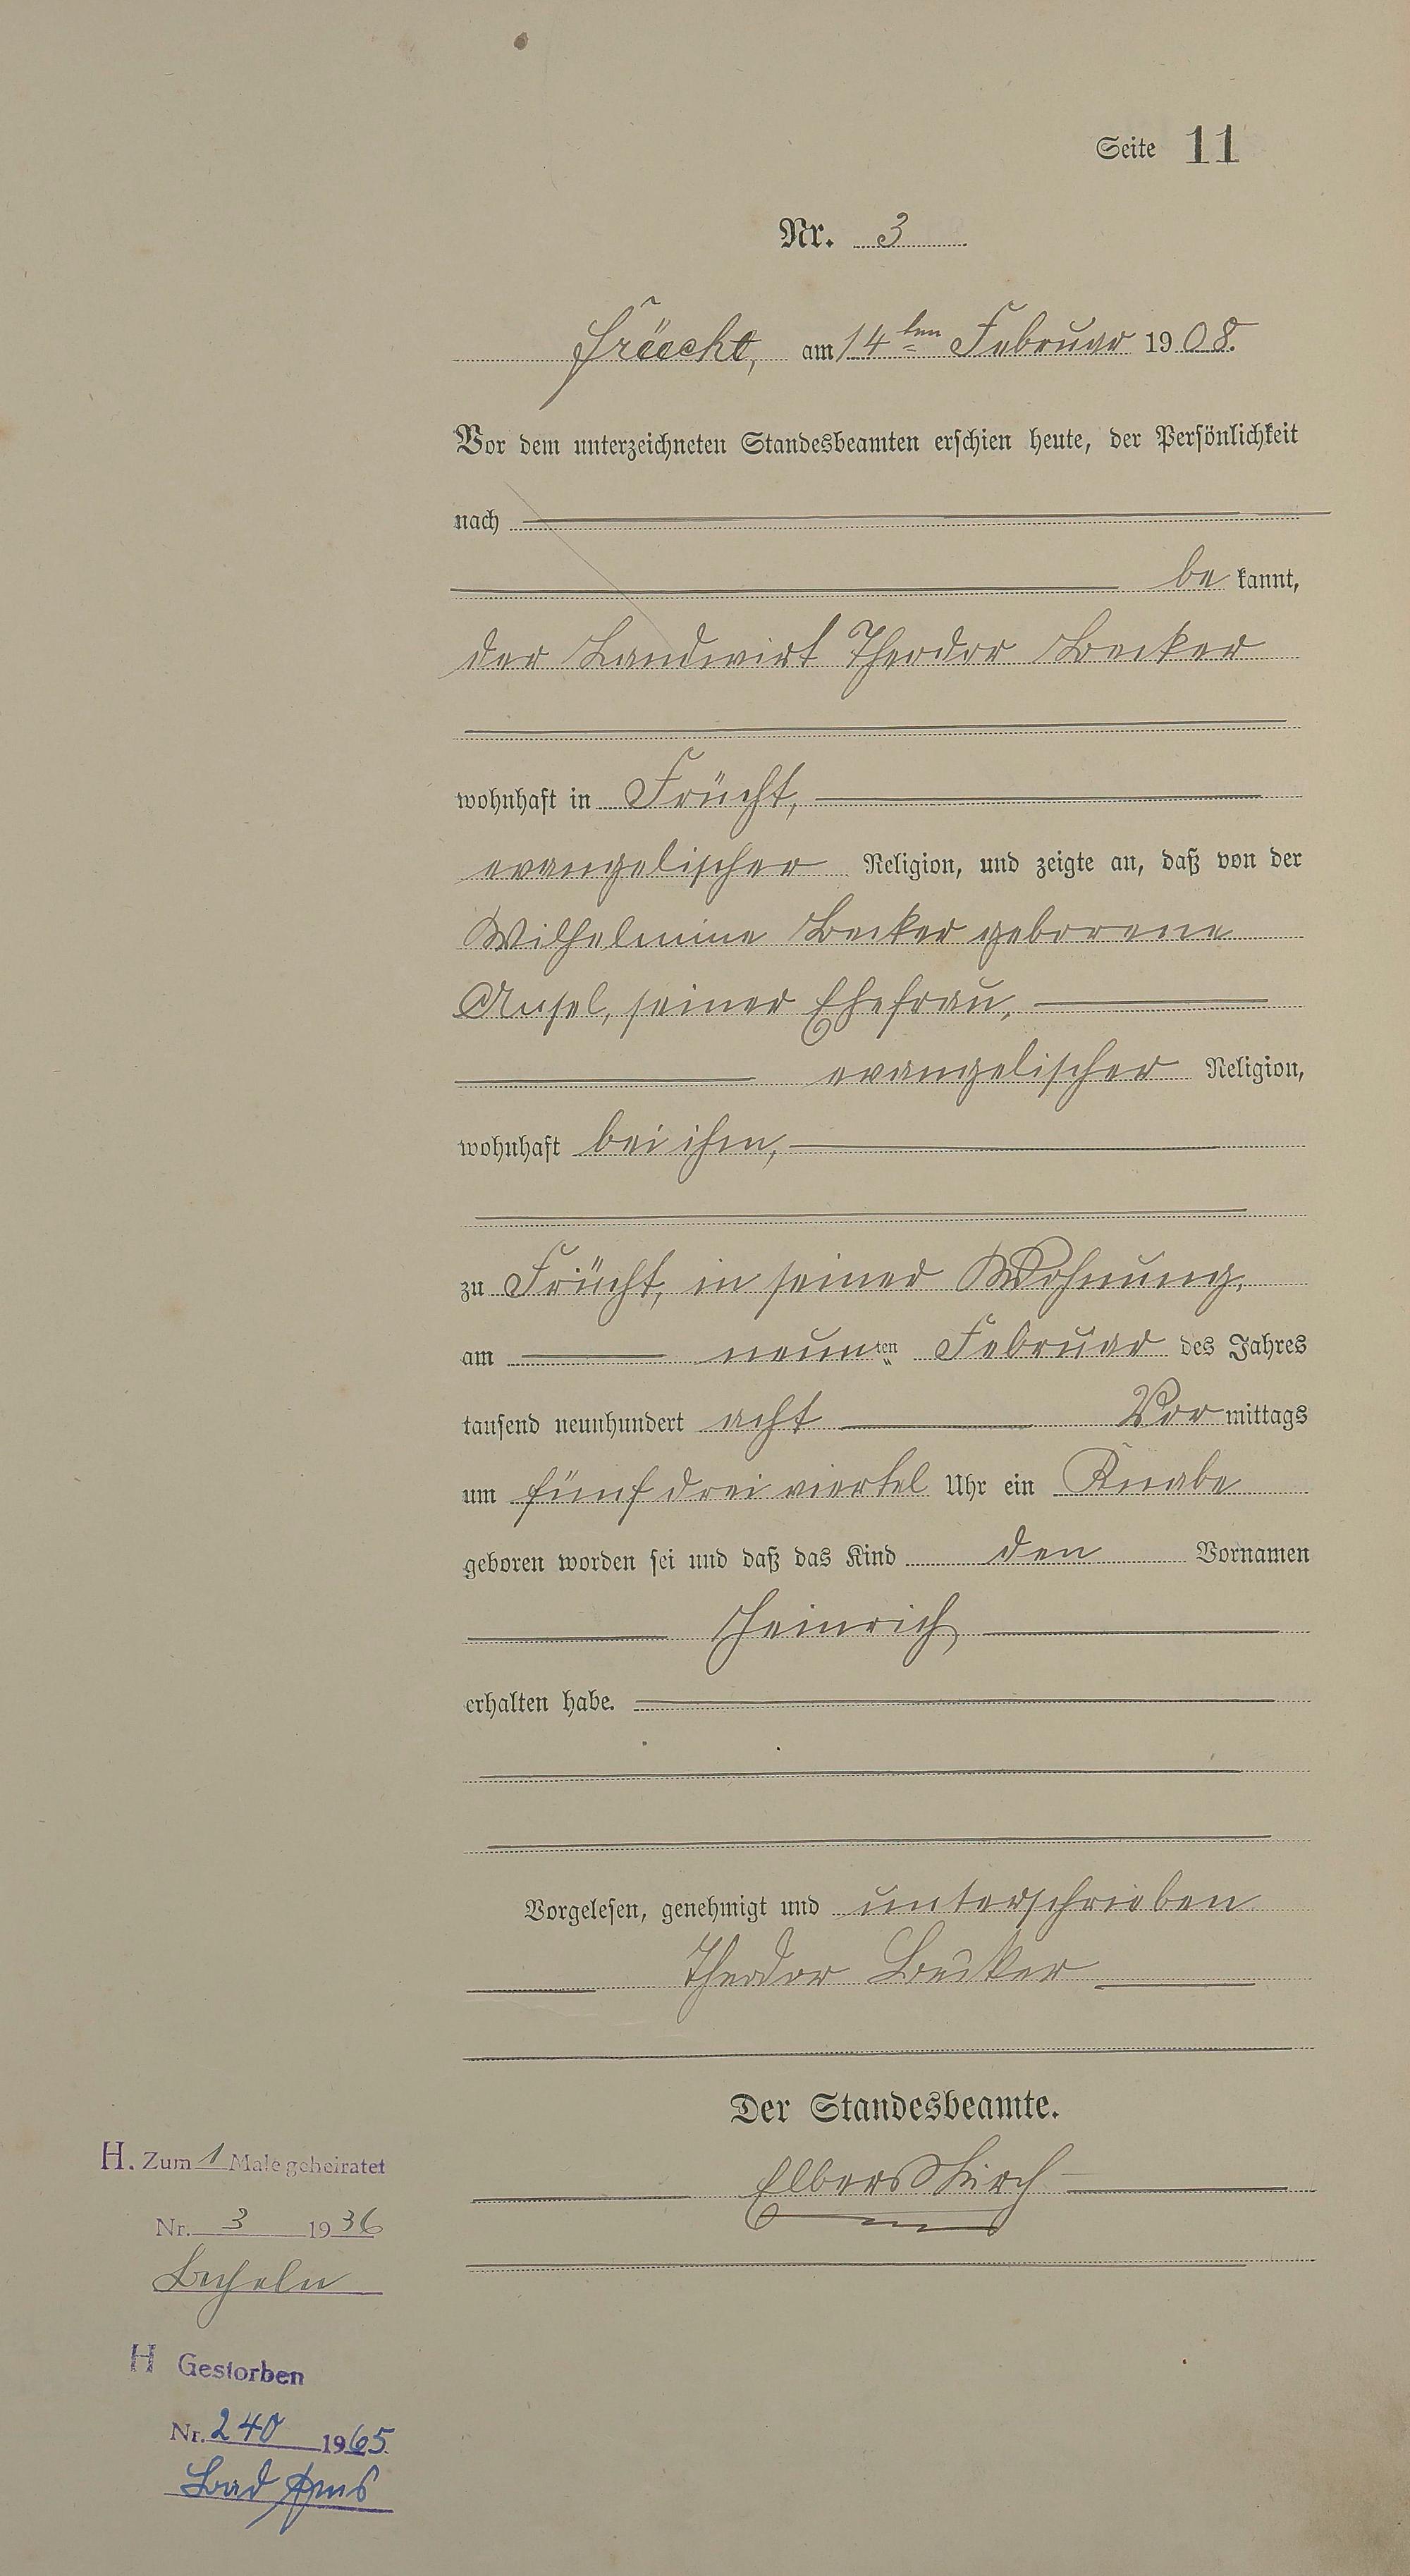 Seite 11
Nr. 3
Frücht, am 14ten Februar 1908.
Vor dem unterzeichneten Standesbeamten erschien heute, der Persönlichkeit
nach
be kannt,
der Landwirt Theodor Becker
wohnhaft in Frücht,
evangelischer Religion, und zeigte an, daß von der
Wilhelmine Becker geborene
Ansel, seiner Ehefrau,
evangelischer Religion,
wohnhaft bei ihm,
zu Frücht, in seiner Wohnung,
am neunten Februar des Jahres
tausend neunhundert acht Vor mittags
um fünf drei viertel Uhr ein Knabe
geboren worden sei und daß das Kind den Vornamen
Heinrich
erhalten habe.
Vorgelesen, genehmigt und unterschrieben
Theodor Becker
Der Standesbeamte.
Elberskirch
H. Zum 1 Male geheiratet
Nr. 3 1936
Becheln
H Gestorben
Nr. 240 1965
Bad Ems